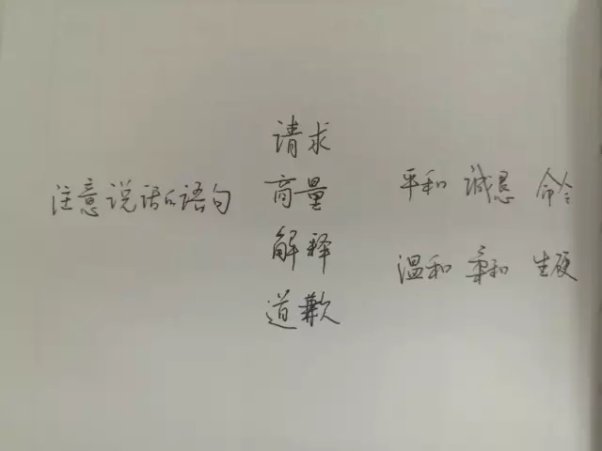 请求
注意说话的语句 商量 平和 诚恳 命令
解释 温和 柔和 生硬
道歉